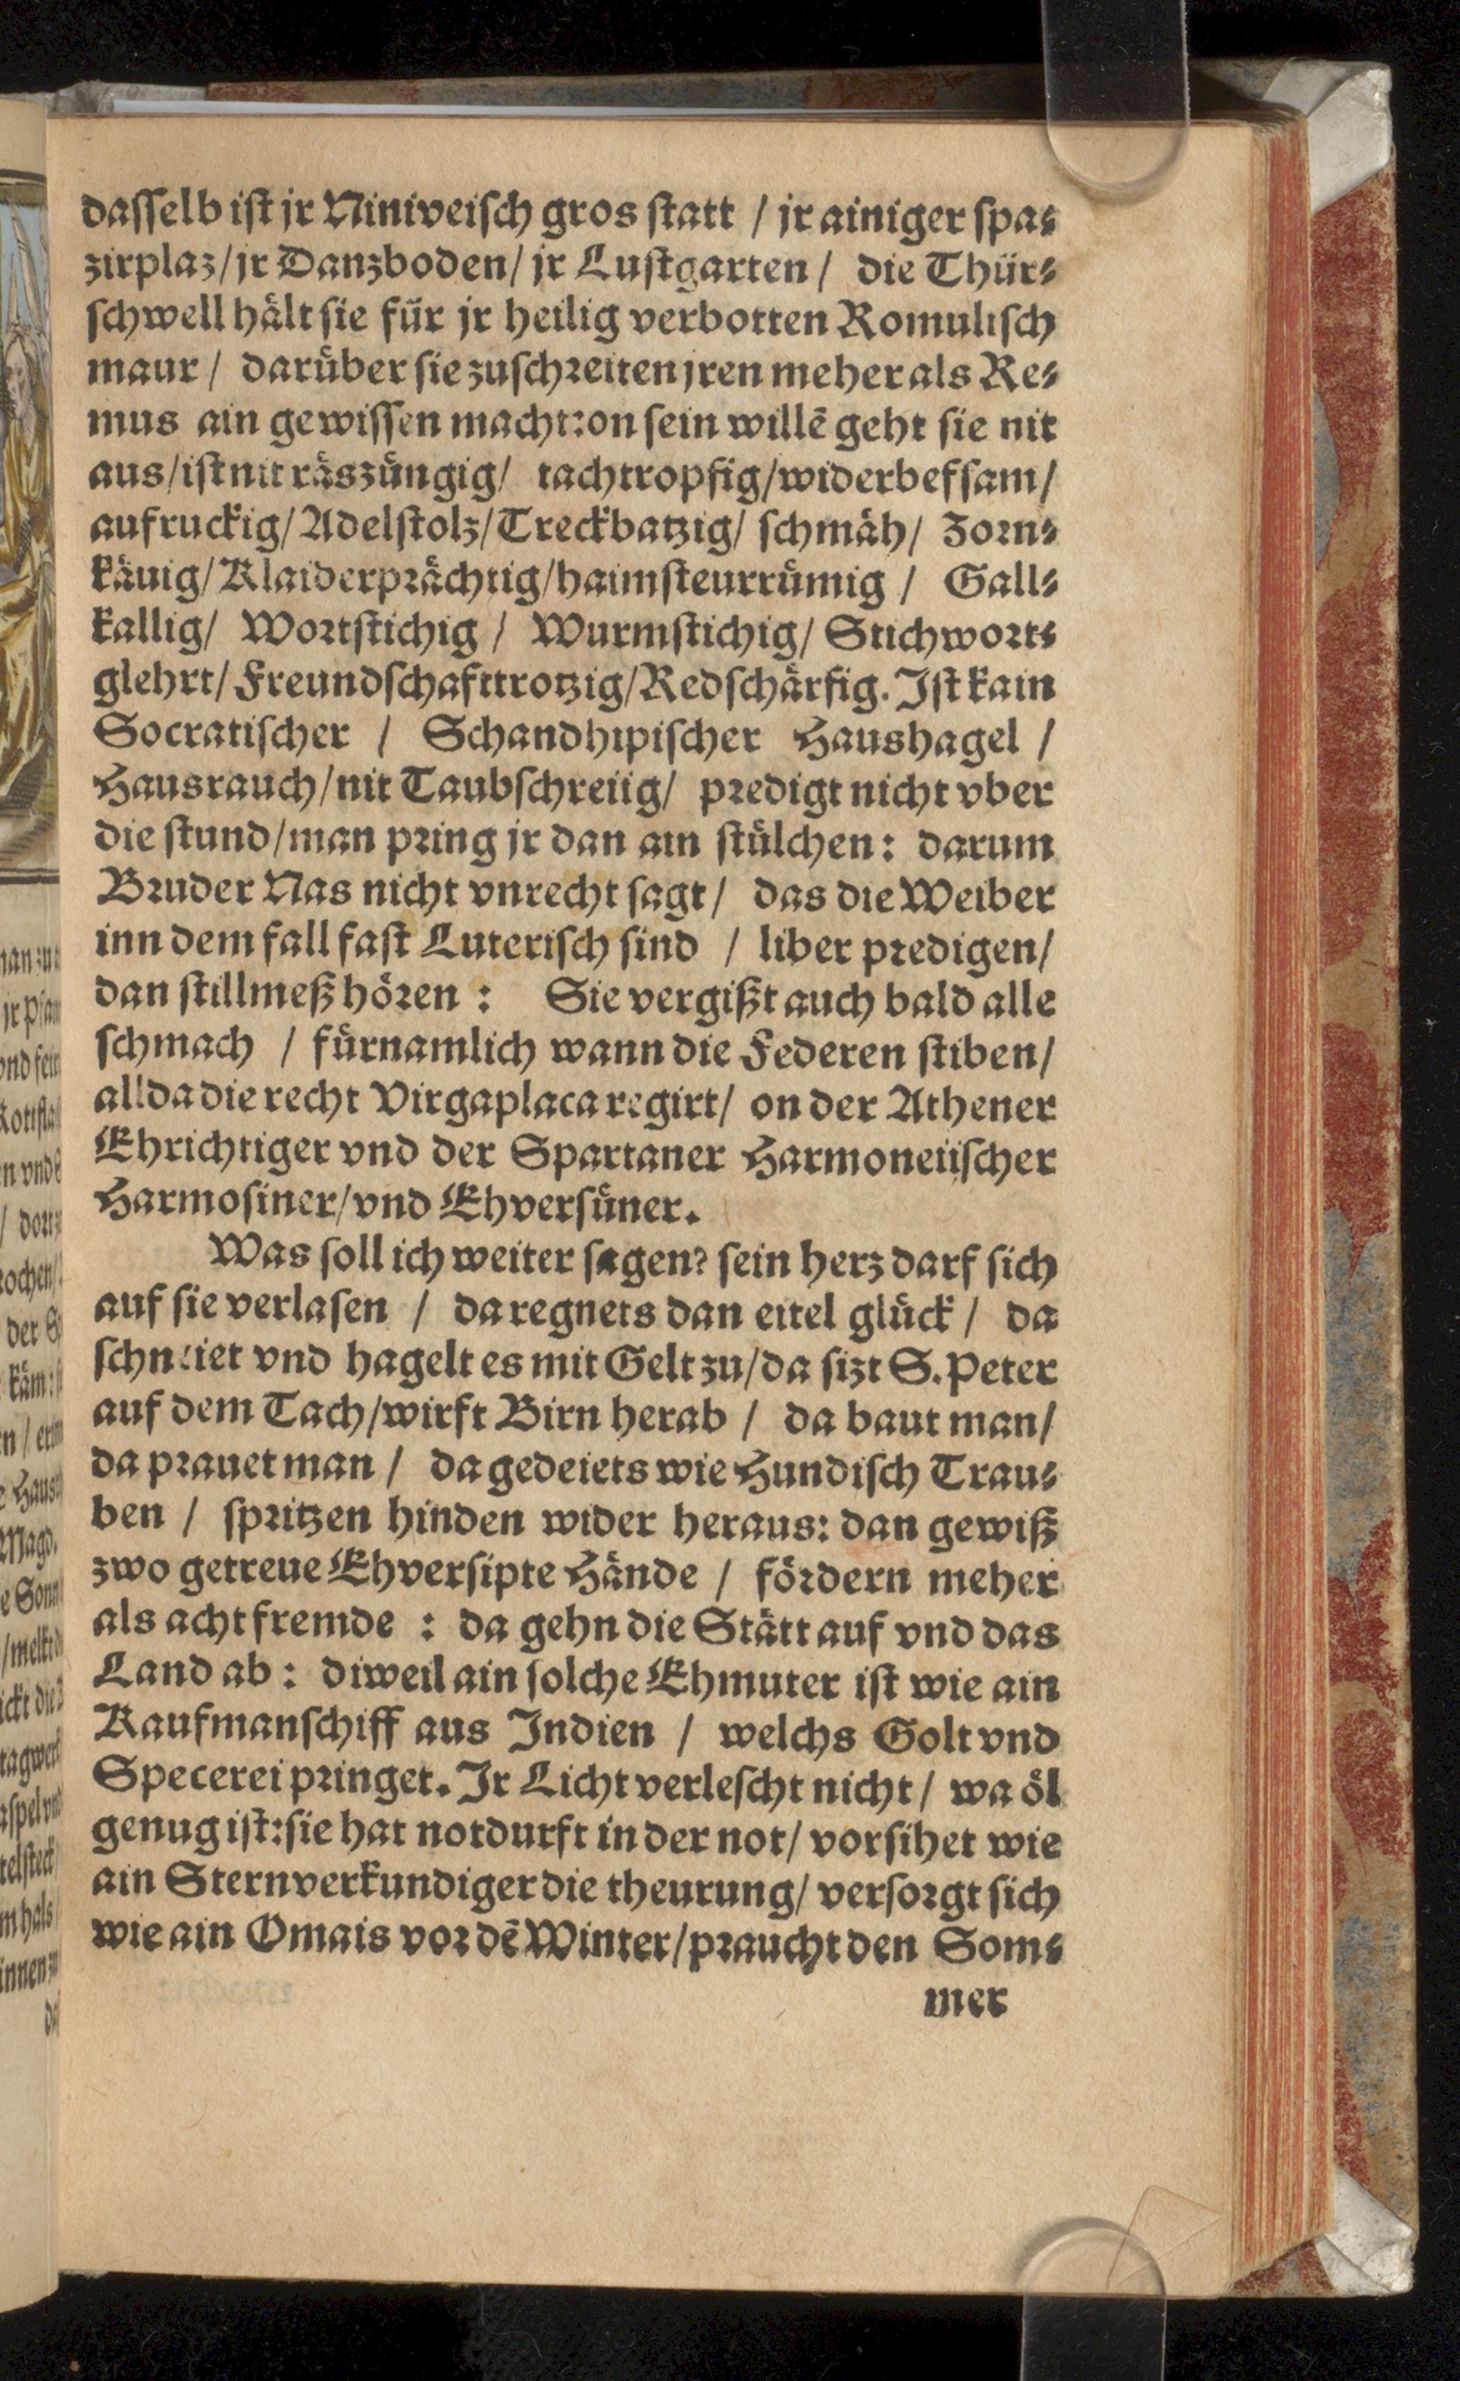 dasſelb iſt jr Niniveiſch gros ſtatt / jr ainiger ſpa⸗
zirplaz/jr Danzboden/ jr Luſtgarten / die Thür⸗
ſchwell hält ſie für jr heilig verbotten Romuliſch
maur / darüber ſie zuſchreiten jren meher als Re⸗
mus ain gewiſſen macht:on ſein willē geht ſie nit
aus/iſt nit räszüngig/ tachtropfig/widerbefſam/
aufruckig/Adelſtolz/Treckbatzig/ ſchmäh/ Zorn⸗
käuig/Klaiderprächtig/haimſteurrümig / Gall⸗
kallig/ Wortſtichig / Wurmſtichig/ Stichworts
glehrt/Freundſchafttrotzig/Redſchärfig. Iſt kain
Socratiſcher / Schandhipiſcher Haushagel /
Hausrauch/nit Taubſchreiig/ predigt nicht vber
die ſtund/man pring jr dan ain ſtülchen: darum
Bruder Nas nicht vnrecht ſagt/ das die Weiber
inn dem fall faſt Luteriſch ſind / liber predigen/
dan ſtillmeß hören : Sie vergißt auch bald alle
ſchmach / fürnamlich wann die Federen ſtiben/
allda die recht Virgaplaca regirt/ on der Athener
Ehrichtiger vnd der Spartaner Harmoneiiſcher
Harmoſiner/vnd Ehverſüner.
Was ſoll ich weiter ſagen? ſein herz darf ſich
auf ſie verlaſen / da regnets dan eitel glück / da
ſchneiet vnd hagelt es mit Gelt zu/da ſizt S. Peter
auf dem Tach/wirft Birn herab / da baut man/
da prauet man / da gedeiets wie Hundiſch Trau⸗
ben / ſpritzen hinden wider heraus: dan gewiß
zwo getreue Ehverſipte Hände / fördern meher
als acht fremde : da gehn die Stätt auf vnd das
Land ab : diweil ain ſolche Ehmuter iſt wie ain
Kaufmanſchiff aus Indien / welchs Golt vnd
Specerei pringet. Ir Licht verleſcht nicht / wa öl
genug iſt:ſie hat notdurft in der not/ vorſihet wie
ain Sternverkundiger die theurung/ verſorgt ſich
wie ain Omais vor dē Winter/praucht den Som⸗
mer